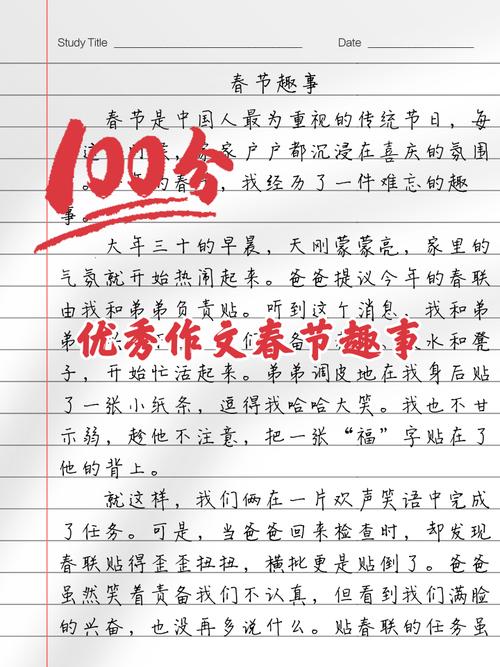 Study Title
Date
春节趣事
春节是中国人最为重视的传统节日，每
这 家户户都沉浸在喜庆的氛围
春 ，我经历了一件难忘的趣
事。
100分
大年三十的早晨，天刚蒙蒙亮，家里的
气氛就开始热闹起来。爸爸提议今年的春联
由我和弟弟负责贴。听到这个消息、我和弟
优秀作文春节趣事
弟 们 备 水和凳
子，开始忙活起来。弟弟调皮地在我身后贴
了一张小纸条，逗得我哈哈大笑。我也不甘
示弱，趁他不注意，把一张“福”字贴在了
他的背上。
就这样，我们俩在一片欢声笑语中完成
了任务。可是，当爸爸回来检查时，却发现
春联贴得歪歪扭扭，横批更是贴倒了。爸爸
虽然笑着责备我们不认真，但看到我们满脸
的兴奋，也没再多说什么。贴春联的任务虽